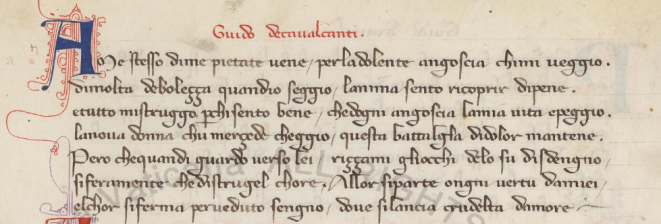 Guido decavalcanti.
A Me stesso dime pietate uene / perladolente angoscia chimi ueggio.
dimolta deboleçça quandio seggio / lanima sento ricoprir dipene.
etutto mistruggo perchisento bene / chedogni angoscia lamia uita epeggio.
lanoua donna chui merçede cheggio / questa battalglia didolor mantene.
Pero chequandi guardo uerso lei / riççami gliocchi delo su disdengno /
siferamente chedistrugel chore. Allor siparte ongni uertu damiei /
elchor siferma perueduto sengno / doue silancia crudelta damore